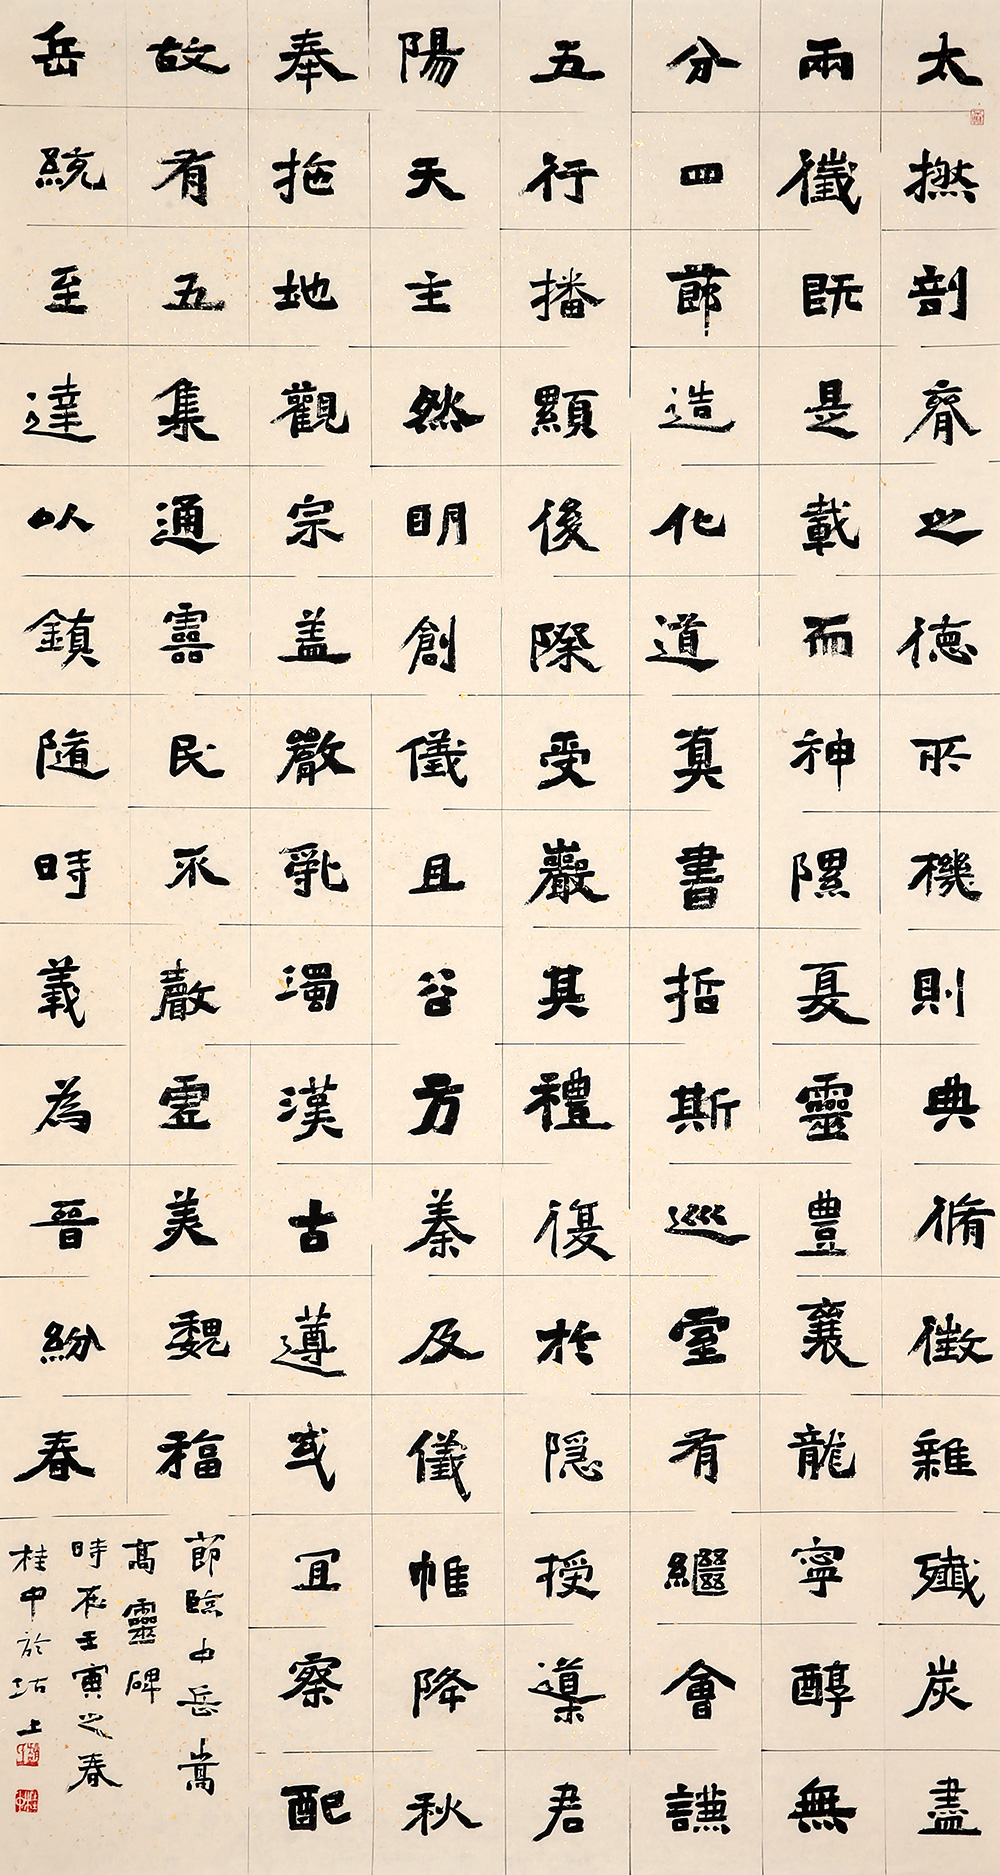 太撚剖脊之德所機則典脩徵雜殲炭盡
兩儀既是載而神隰夏靈豊襄龍寧醇無
分四節造化道真書哲斯巡室有繼會謙
五行播顯後際受嚴其禮復於隐授導君
陽天主然明創儀且谷方秦及儀惟降秋
奉拖地觀宗盖嚴乳濁漢古遵或宜察配
故有五集通靈民不嚴虚美魏福
岳統至達以鎮隨時義為晉紛春
節臨中岳嵩
高靈碑
時在壬寅之春
桂中於沽上